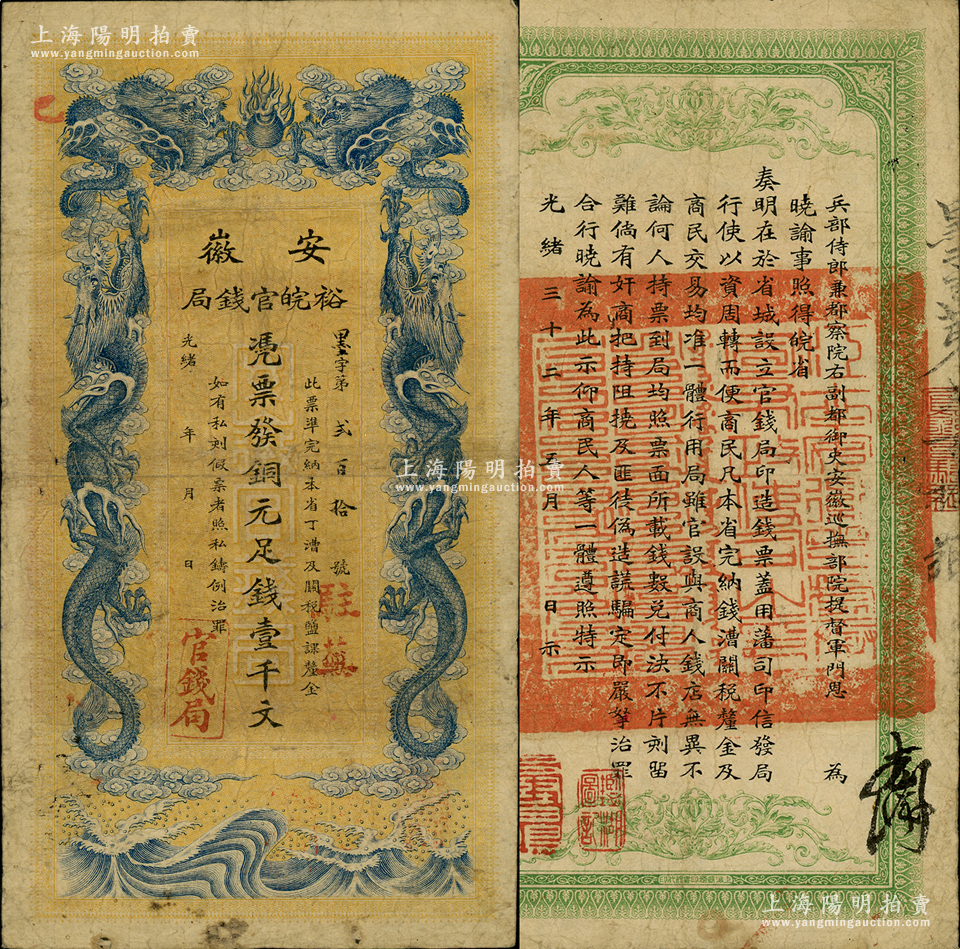 上海陽明拍賣
www.yangmingauction.com
安徽
裕皖官錢局
墨字第貳百拾號
此票準完納本省丁漕及關稅鹽課釐金
憑票發銅元足錢壹千文
如有私刻假票者照私鑄例治罪
光緒 年 月 日
官錢局
駐蕪
兵部侍郎兼都察院右副都御史安徽巡撫部院提督軍門恩 為
曉諭事照得皖省
奏明在於省城設立官錢局印造錢票蓋用藩司印信發局
行使以資周轉而便商民凡本省完納錢漕關稅釐金及
商民交易均准一體行用局雖官設與商人錢店無異不
論何人持票到局均照票面所載錢數兌付決不片刻留
難倘有奸商把持阻撓及匪徒偽造謊騙定即嚴拏治罪
合行曉諭為此示仰商民人等一體遵照特示
光緒三十二年五月 日示
上海陽明拍賣
www.yangmingauction.com
上海陽明拍賣
www.yangmingauction.com